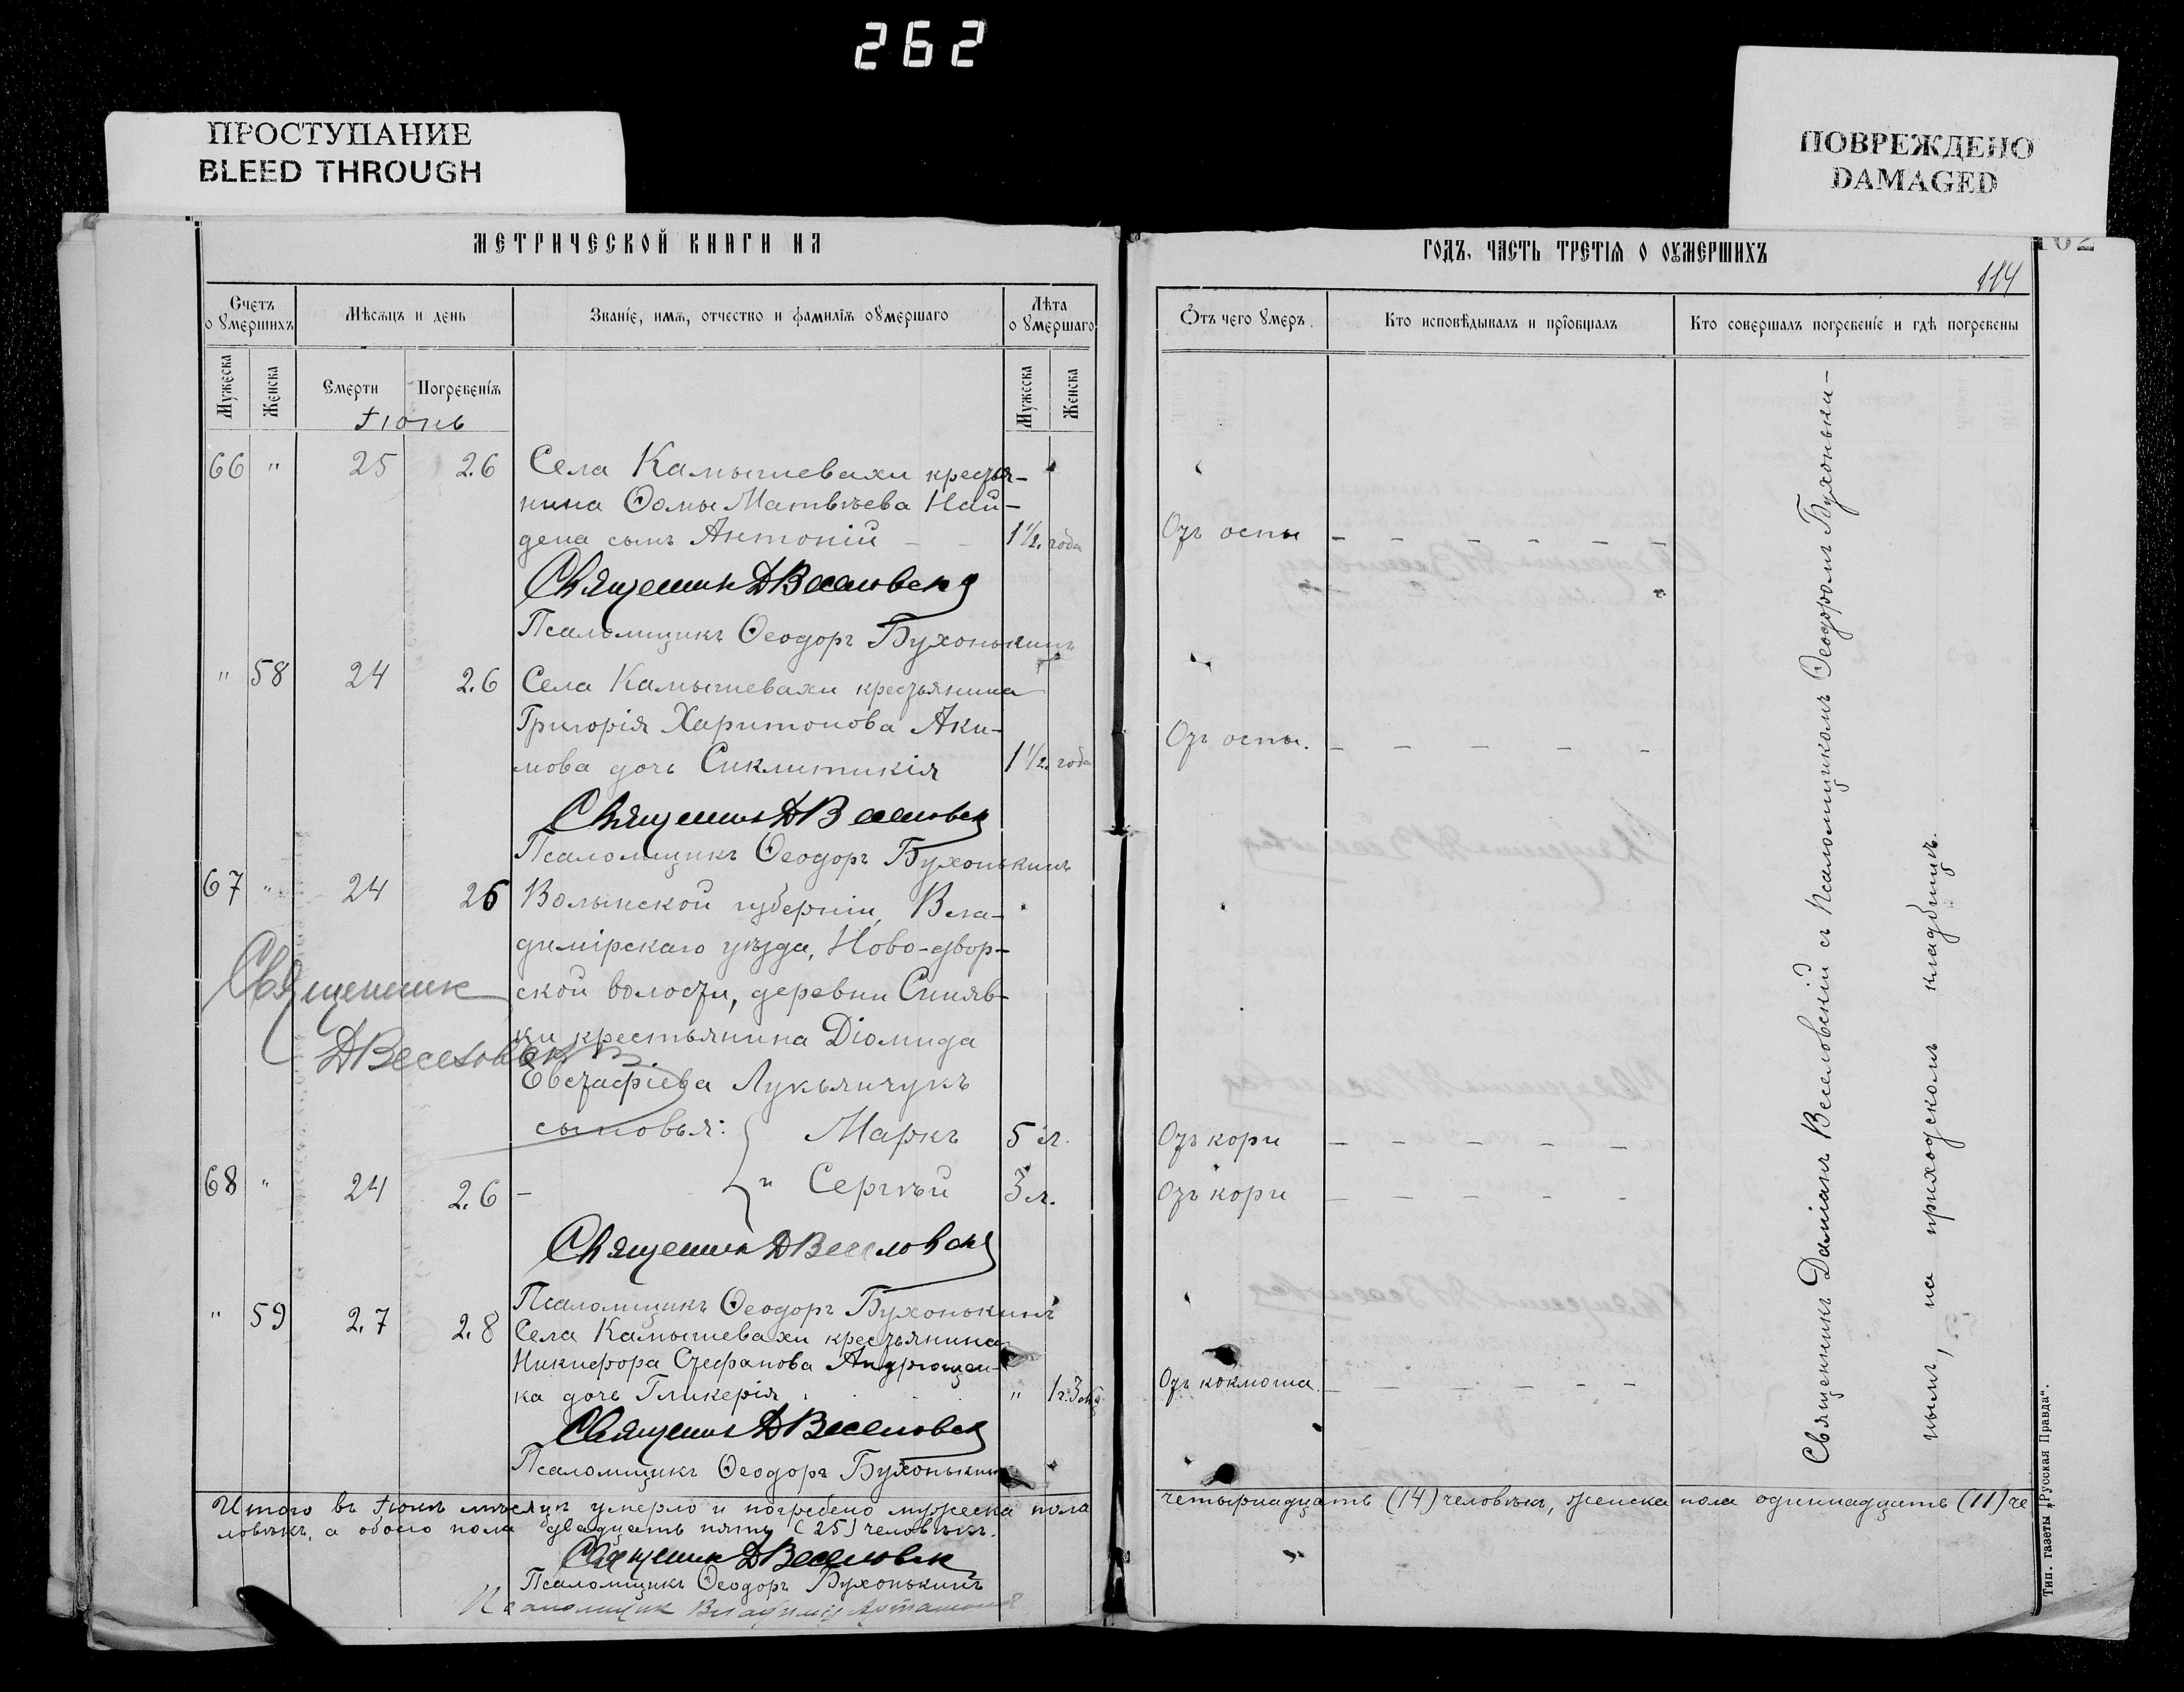 262
ПРОСТУПАНИЕ
BLEED THROUGH
ПОВРЕЖДЕНО
DAMAGED
МЕТРИЧЕСКОЙ КНИГИ НА
Счетъ оумершихъ
Мѣсяцъ и день
Званіе, имя, отчество и фамилія оумершаго
Лѣта оумершаго
Мужеска
Женска
Смерти
Погребенія
Мужеска
Женска
Іюнь
66 " 25 26 Села Камышевахи крестья-
нина Ѳомы Матвѣева Най-
дена сынъ Антоній – – 1½ года
Священникъ Д Веселовскій
Псаломщикъ Ѳеодоръ Бухонькинъ
" 58 24 26 Села Камышевахи крестьянина
Григорія Харитонова Аки-
мова дочь Синклитикія 1½ года
Священникъ Д Веселовскій
Псаломщикъ Ѳеодоръ Бухонькинъ
67 " 24 26 Волынской губерніи, Вла-
димірскаго уѣзда, Ново-двор-
ской волости, деревни Синяв-
ки крестьянина Діомида
Евстафіева Лукьянчукъ
сыновья: Маркъ 5 л.
Священникъ
Д Веселовскій
68 " 24 26 – " Сергѣй 3 л.
Священникъ Д Веселовскій
Псаломщикъ Ѳеодоръ Бухонькинъ
" 59 27 28 Села Камышевахи крестьянина
Никифора Стефанова Андрющен-
ка дочь Гликерія " 1 г. 3 мѣ
Священникъ Д Веселовскій
Псаломщикъ Ѳеодоръ Бухонькинъ
Итого въ Іюнѣ мѣсяцѣ умерло и погребено мужеска пола
ловѣкъ, а обоего пола двадцать пять (25) человѣкъ.
Священникъ Д Веселовскій
Псаломщикъ Ѳеодоръ Бухонькинъ
Псаломщик Владимір
ГОДЪ, ЧАСТЬ ТРЕТІЯ О ОУМЕРШИХЪ
102
114
Отъ чего умеръ
Кто исповѣдывалъ и пріобщалъ
Кто совершалъ погребеніе и гдѣ погребены
Отъ оспы – – – – – –
Отъ оспы. – – – – –
Отъ кори – – – – –
Отъ кори – – – – – –
Отъ коклюша. – – – – – –
Священникъ Даміанъ Веселовскій съ Псаломщикомъ Ѳеодоромъ Бухонькі-
нымъ, на приходскомъ кладбищѣ.
четырнадцать (14) человѣкъ, женска пола одиннадцать (11) че
Тип. газеты „Русская Правда".